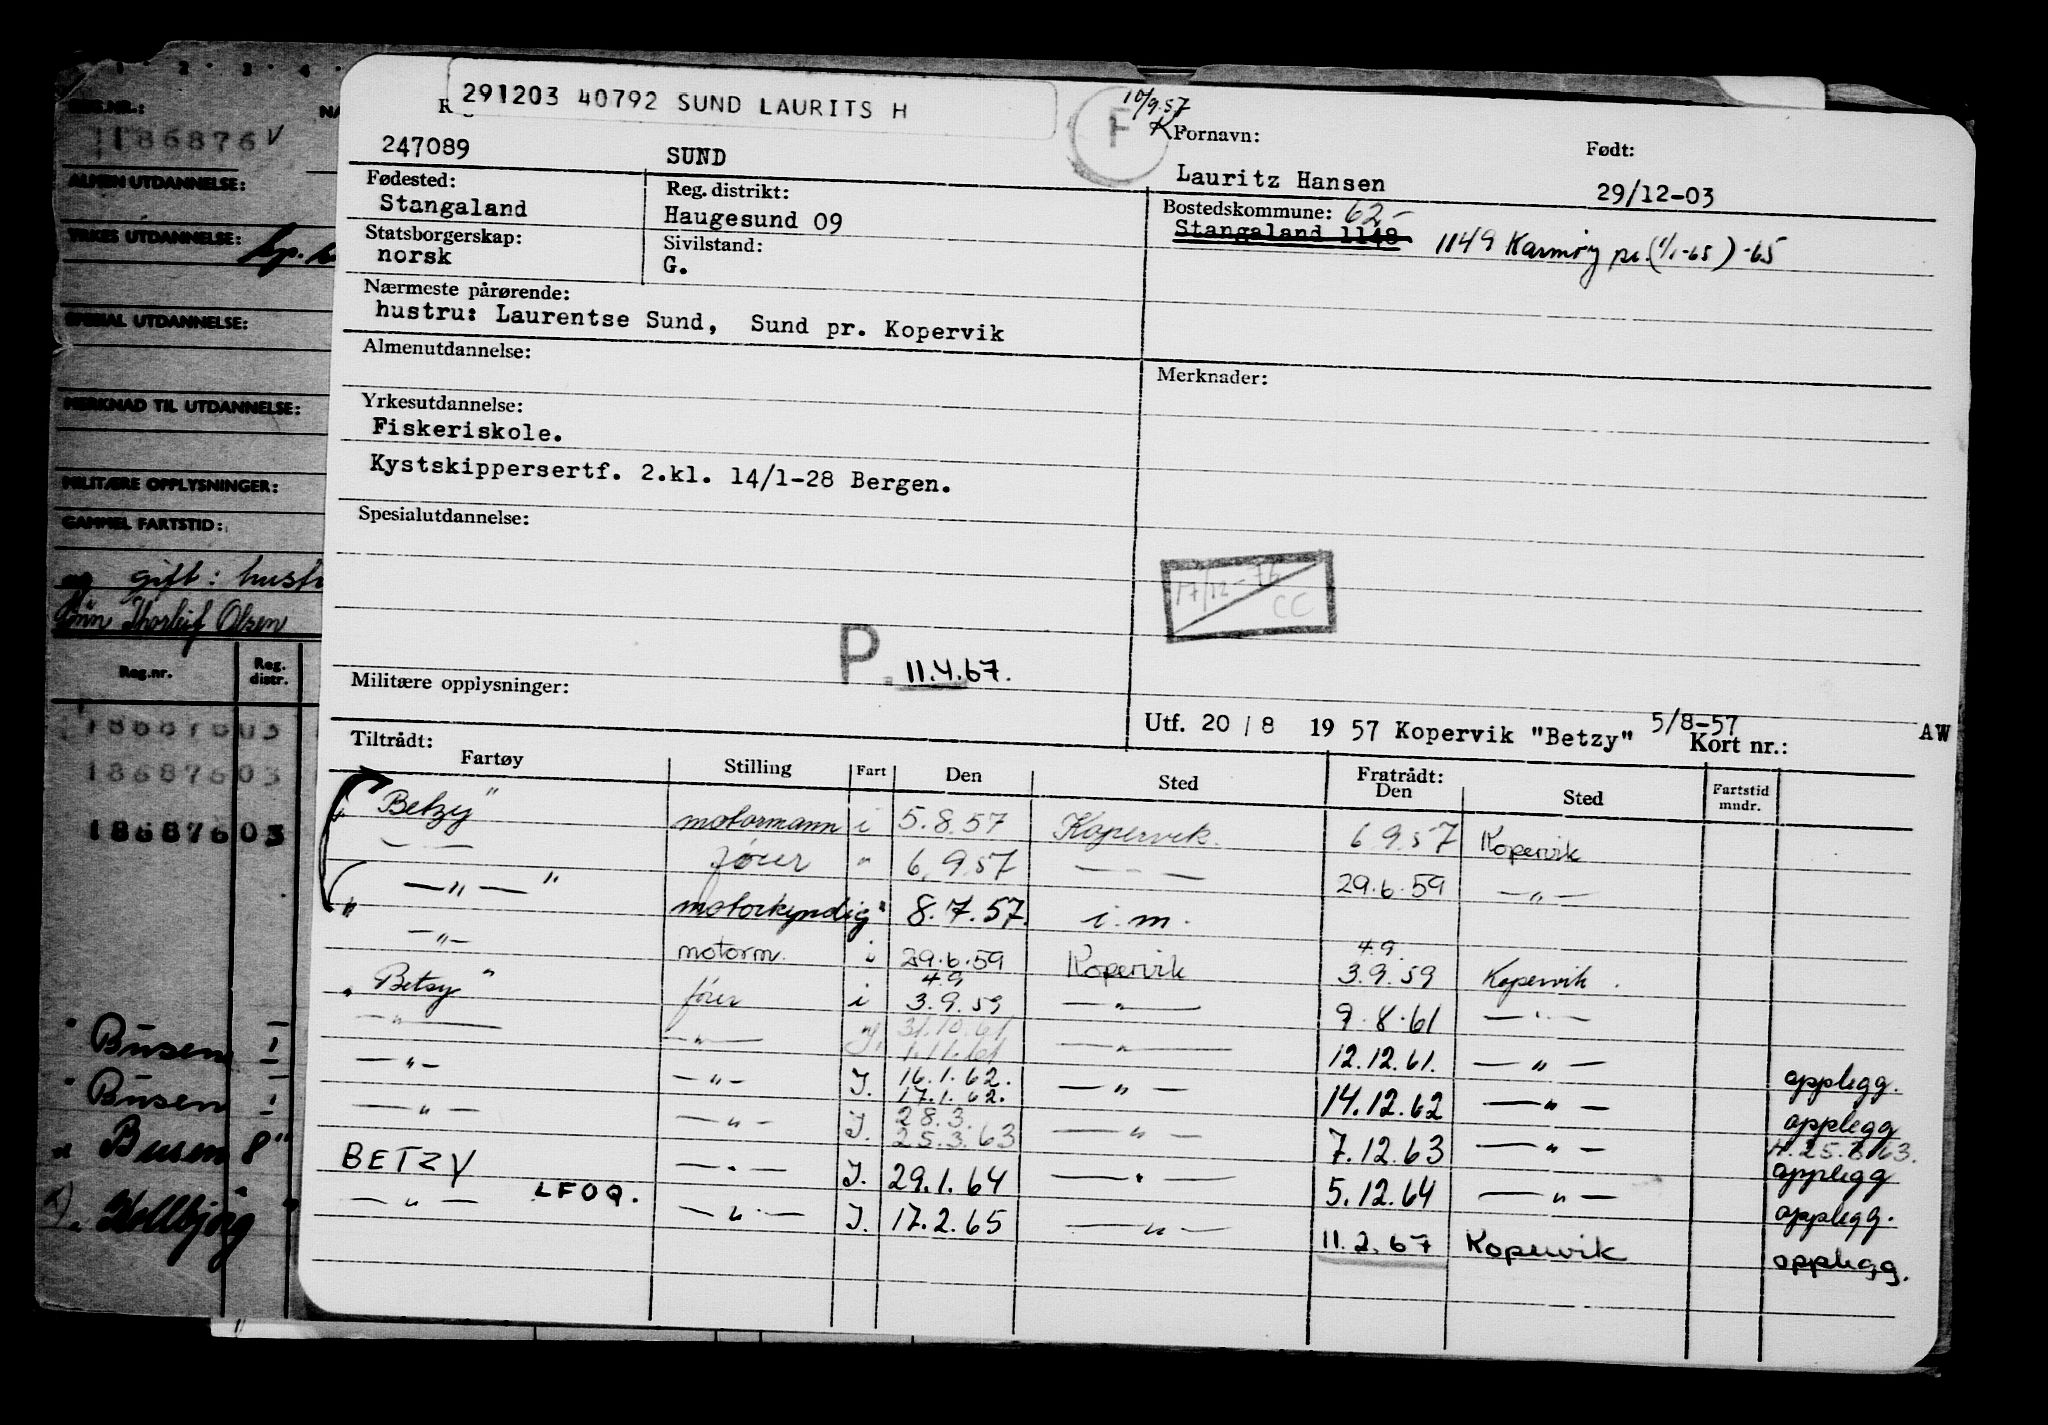 291203 40792 SUND LAURITS H
F
10/9.57
K
Fornavn:
Født:
247089
SUND
Lauritz Hansen
29/12-03
Fødested:
Stangaland
Reg. distrikt:
Haugesund 09
Bostedskommune: 62,-
Stangaland 1148
1149 Karmøy pr. (1/1-65) -65
Statsborgerskap:
norsk
Sivilstand:
G.
Nærmeste pårørende:
hustru: Laurentse Sund, Sund pr. Kopervik
Almenutdannelse:
Merknader:
Yrkesutdannelse:
Fiskeriskole.
Kystskippersertf. 2.kl. 14/1-28 Bergen.
Spesialutdannelse:
17/12-76
CC
P. 11.4.67.
Militære opplysninger:
Utf. 20 / 8 19 57 Kopervik "Betzy" 5/8-57
Kort nr.:
AW
Tiltrådt:
Fartøy Stilling Fart Den Sted Fratrådt: Den Sted Fartstid mndr.
"Betzy" motormann i 5.8.57 Kopervik. 6 9.57 Kopervik
— — fører " 6.9.57 — — — 29.6.59 — " —
" — " — " motorkyndig " 8.7.57. i.m.
— " — motorm. i 29.6.59 Kopervik 4.9. 3.9.59 Kopervik.
" Betsy " fører i 4.9 3.9.59 — " — 9.8.61 — " —
— " — — " — I. 31.10.61 1.11.61 — " — 12.12.61. — " — opplegg.
— " — — " — I. 16.1.62. 17.1.62. — " — 14.12.62 — " — opplegg
— " — — " — I. 28.3. 25.3.63 — " — 7.12.63 — " — 25.3.63. opplegg
BETZY — " — I. 29.1.64 — " — 5.12.64 — " — opplegg.
— " — LFOQ. — " — I. 17.2.65 — " — 11.2.67 Kopervik opplegg.
1 2 3 4
REG.NR.:
NA
186876 V
ALMEN UTDANNELSE:
YRKES UTDANNELSE:
SPESIAL UTDANNELSE:
MERKNAD TIL UTDANNELSE:
MILITÆRE OPPLYSNINGER:
GAMMEL FARTSTID:
og gift: hustr
Thorleif Olsen
Reg.nr. Reg. distr.
186876 03
186876 03
186876 03
" Busen I
" Busen I
" Busen 8"
x) " Kollbjørg "